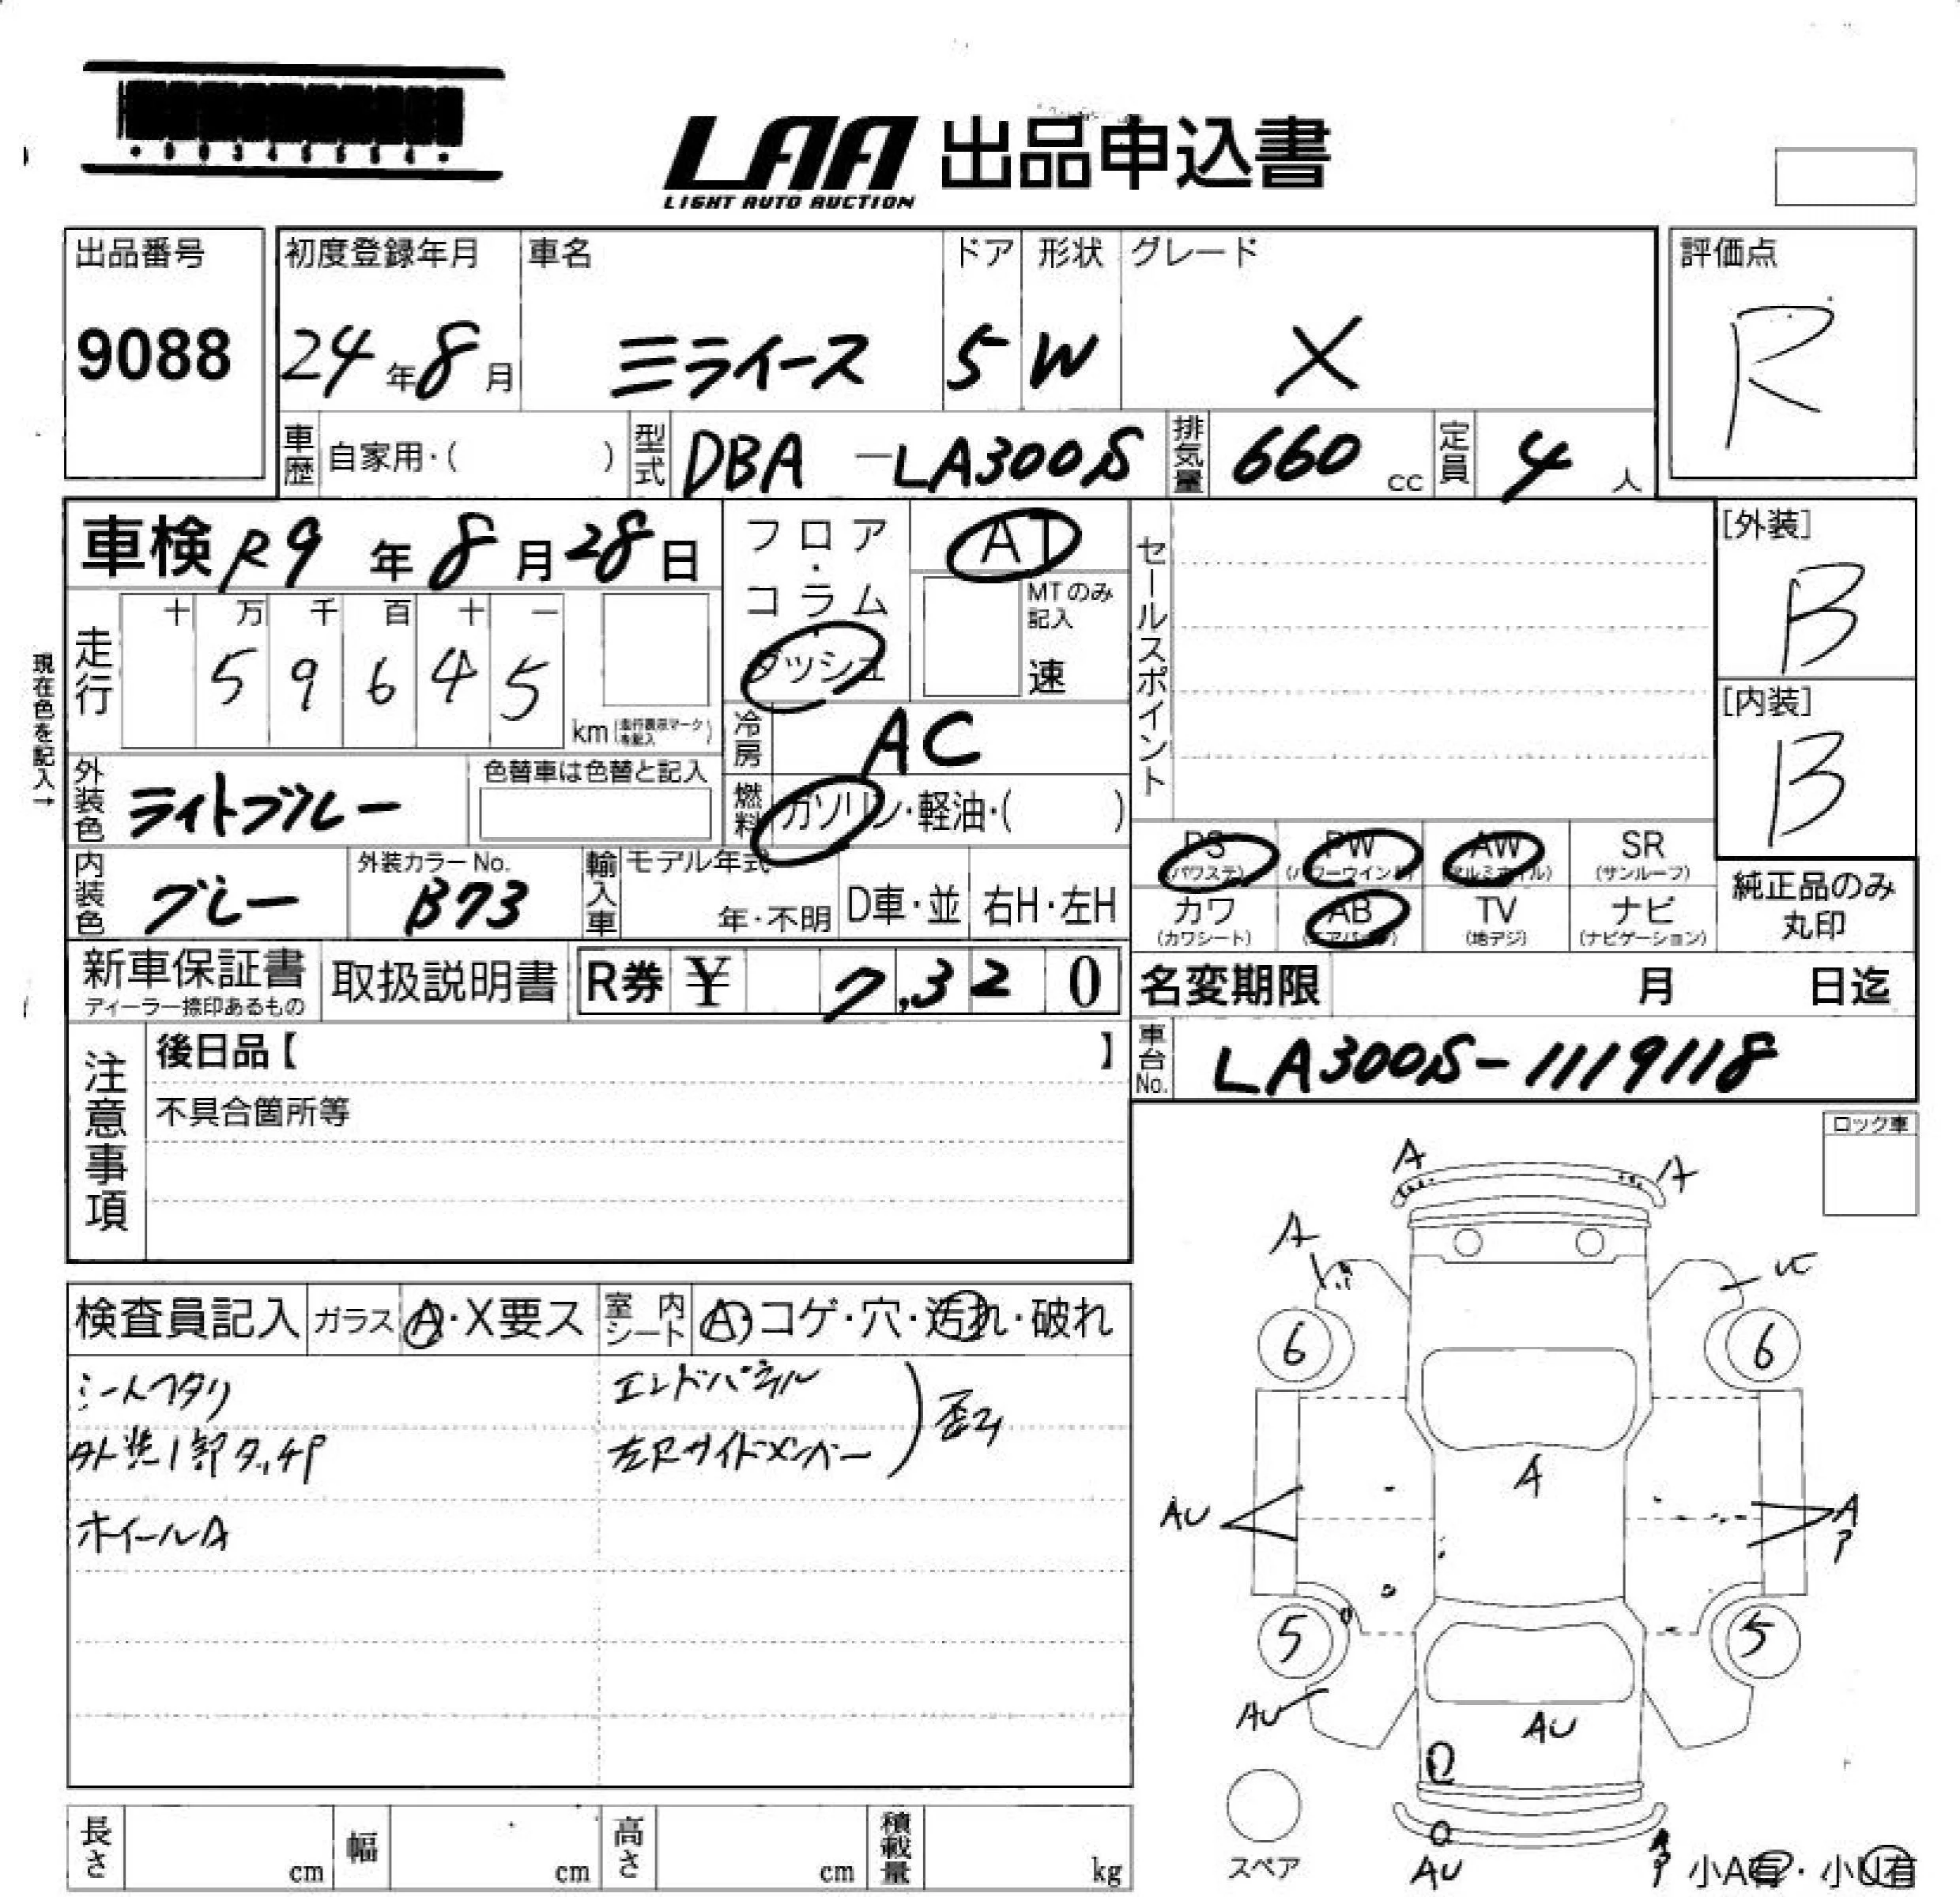 LAA 出品申込書
LIGHT AUTO AUCTION
出品番号 初度登録年月 車名 ドア 形状 グレード 評価点
9088 24年8月 ミライース 5 W X R
車歴 自家用・( ) 型式 DBA-LA300S 排気量 660 cc 定員 4 人
車検 R9年8月28日 フロア・コラム・ダッシュ AT セールスポイント [外装] B
MTのみ記入 速
現在色を記入→
走行 十 万 千 百 十 一
5 9 6 4 5 km (走行表示マークを記入)
[内装] B
冷房 AC
外装色 ライトブルー 色替車は色替と記入 燃料 ガソリン・軽油・( )
PS (パワステ) PW (パワーウインド) AW (アルミホイル) SR (サンルーフ)
内装色 グレー 外装カラーNo. B73 輸入車 モデル年式 年・不明 D車・並 右H・左H
カワ (カワシート) AB (エアバック) TV (地デジ) ナビ (ナビゲーション)
純正品のみ丸印
新車保証書 取扱説明書 R券 ¥ 7,320 名変期限 月 日迄
ディーラー捺印あるもの
注意事項 後日品【 】 車台No. LA300S-1119118
不具合箇所等
ロック車
A A
A
検査員記入 ガラス A・X要ス 室内シート A・コゲ・穴・汚れ・破れ
6 6
シートヘタリ エンドパネル
外装1部タッチP 左Rサイドメンバー
ホイールA
A
AU A P
5 5
AU AU
長さ cm 幅 cm 高さ cm 積載量 kg
スペア AU 小A有・小U有